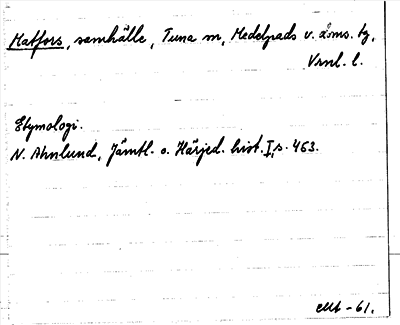 Matfors, samhälle, Tuna sn, Medelpads v. doms. tg,
Vrnl. l.
Etymologi.
N. Ahnlund, Jämtl. o. Härjed. hist. I, s. 463.
-61.